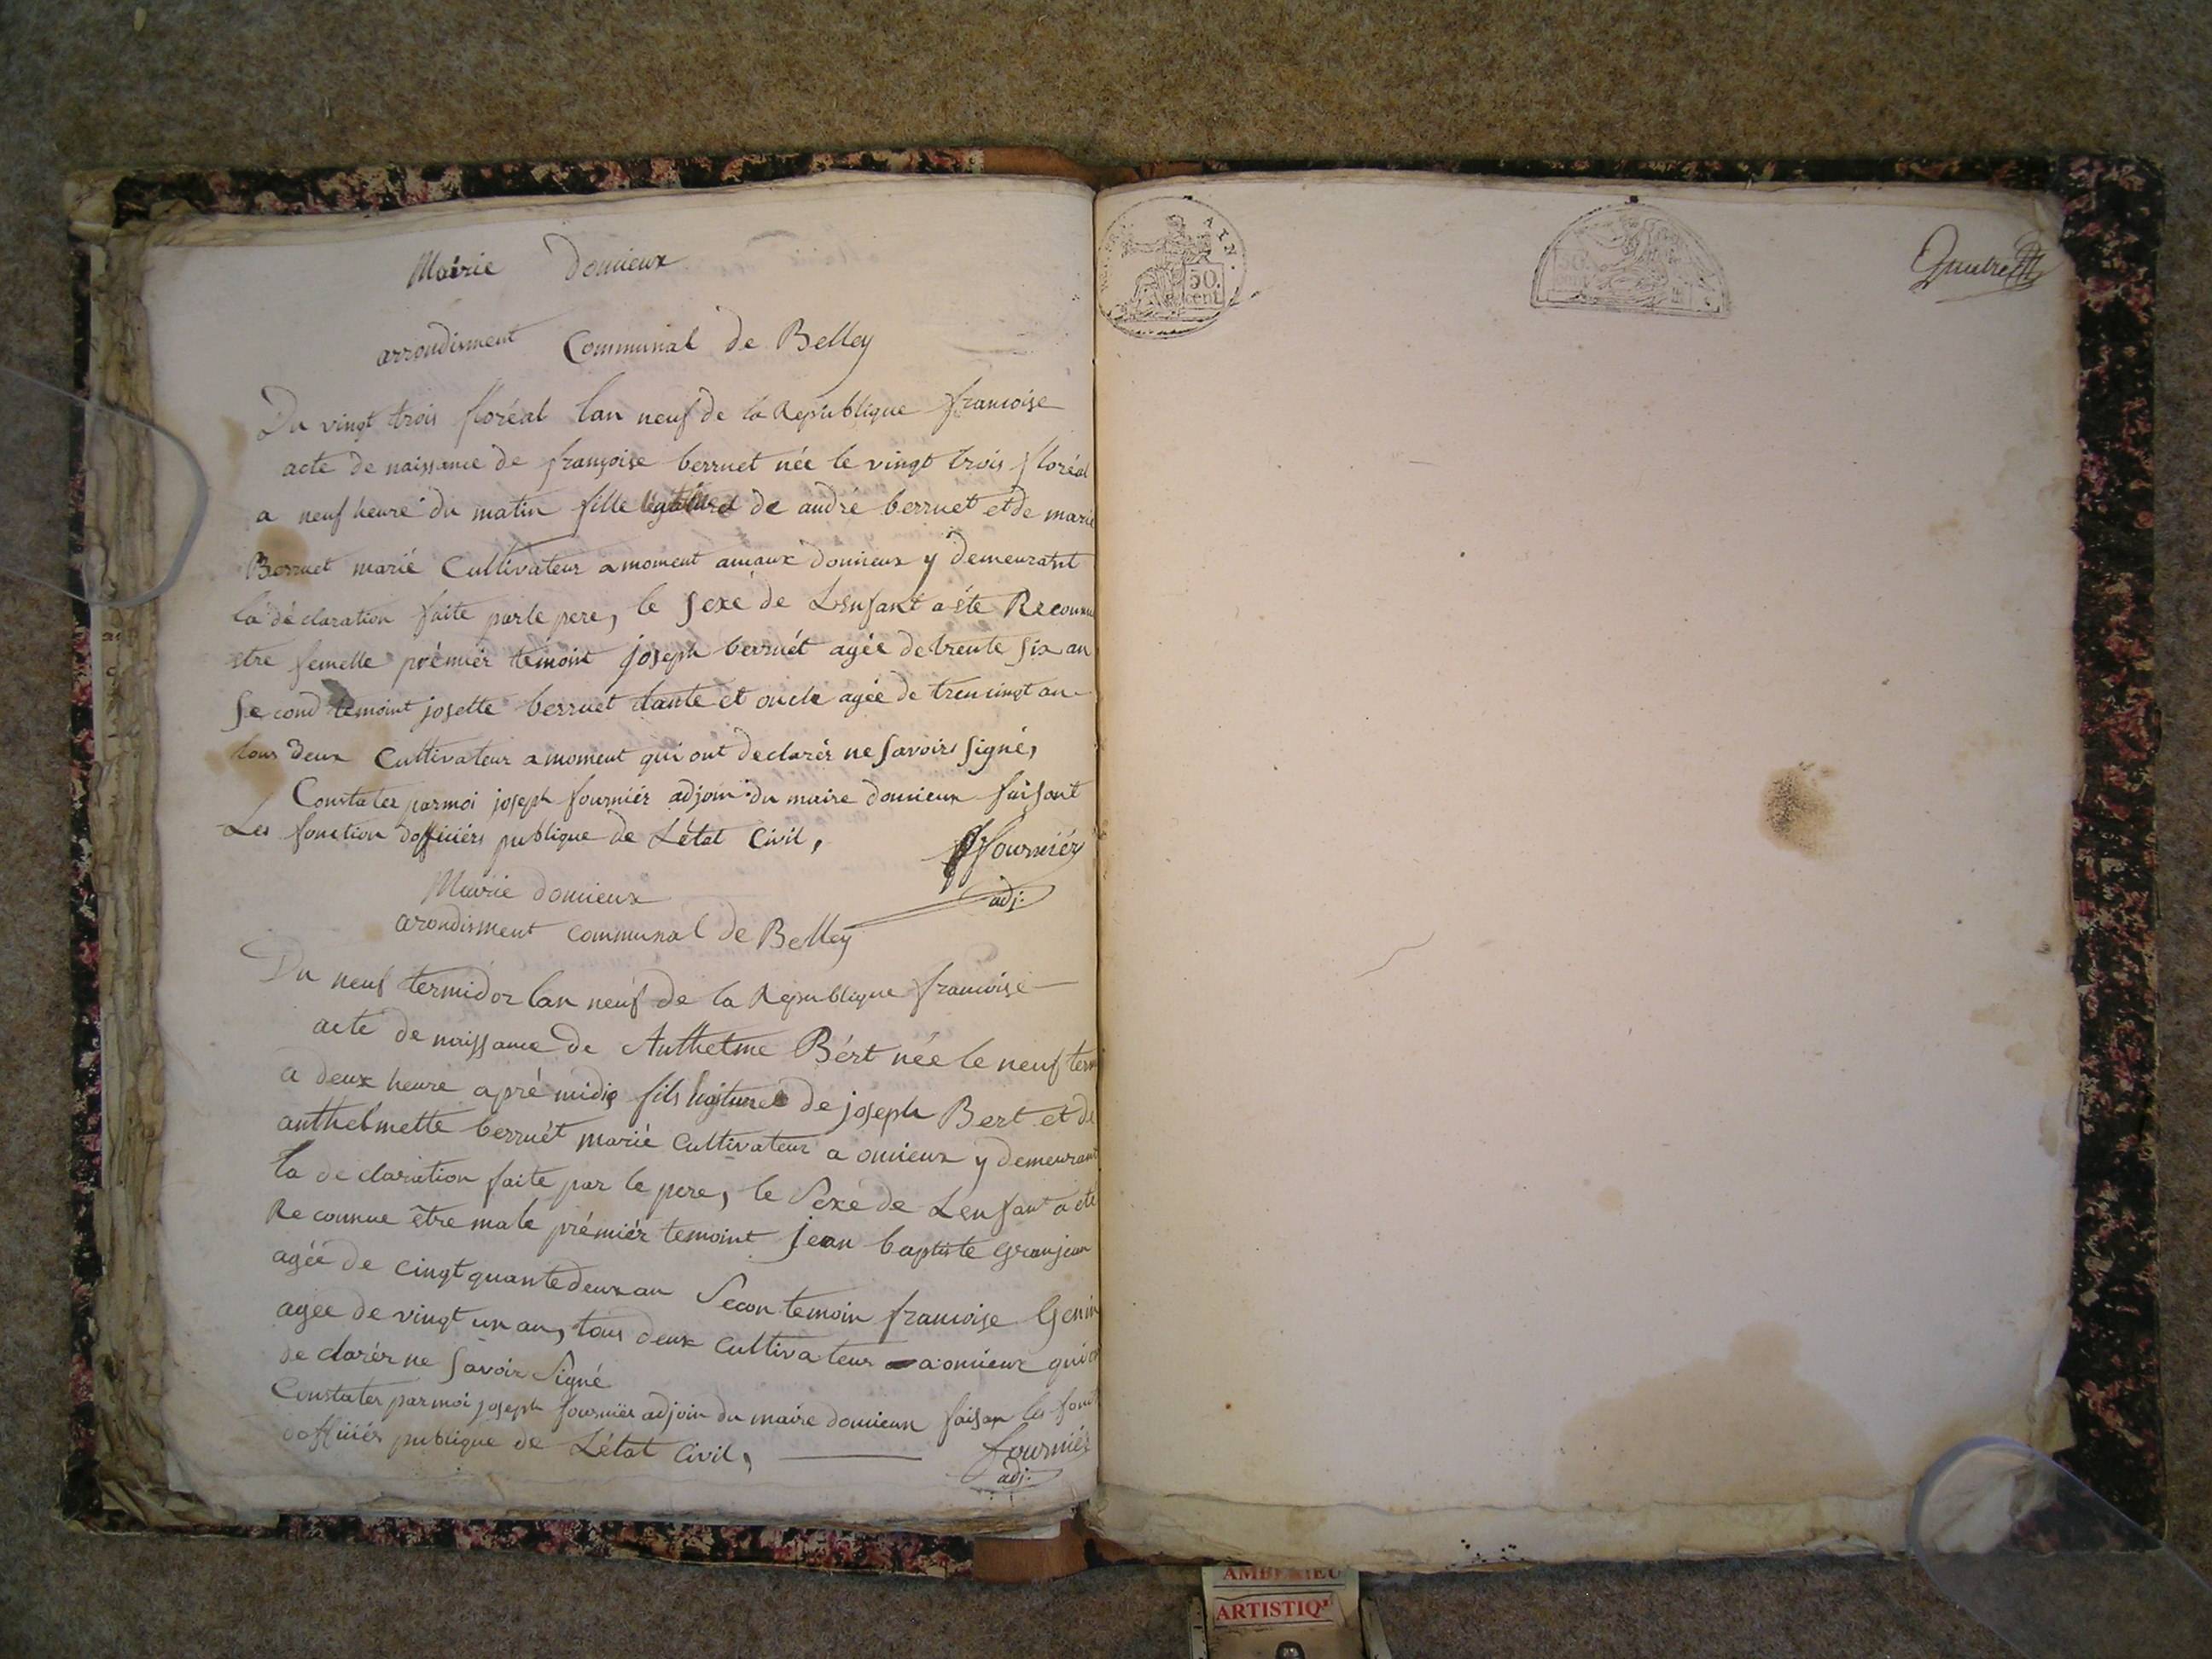 Mairie Donnieux
arrondisment Communal de Belley
Du vingt trois floréal lan neuf de la Republique francoise
acte de naissance de françoise berruet née le vingt trois floréal
a neuf heure du matin fille de andré berruet et de marie
Berruet marié Cultivateur a moment amaux donnieux y demeurant
la déclaration faite parle pere, le sexe de Lenfant a éte Reconnu
etre femelle prémiér temoint joseph berruét agée de trente six an
se cond temoint josette berruet tante et oncle agée de trencinqt an
tous deux Cultivateur a moment qui ont declarér ne savoir signé,
Constater parmoi joseph fourniér adjoin du maire donnieux faisant
Les fonction dofficiérs publique de L'état Civil,
fourniér
adj.
Mairie donnieux
arondisment communal de Belley
Du neuf termidor lan neuf de la Republique francoise
acte de naissance de Anthelme Bért née le neuf term
a deux heure apré midis fils de joseph Bert et de
anthelmette berruét marié Cultivateur a onnieux y demeurant
la de claration faite par le pere, le Sexe de Lenfant a été
Re connue être male prémiér temoint jean baptiste Granjean
agée de cinqtquante deux an Secon temoin francoise Genin
agée de vingt un an, tous deux Cultivateur a onnieux qui on
de clarér ne savoir Signé
Constater parmoi joseph fourniér adjoin du maire donnieux faisan les fonct
dofficiér publique de L'état Civil,
fourniér
adj.
AIN.
50.
cent.
AMBERIEU
ARTISTIQ